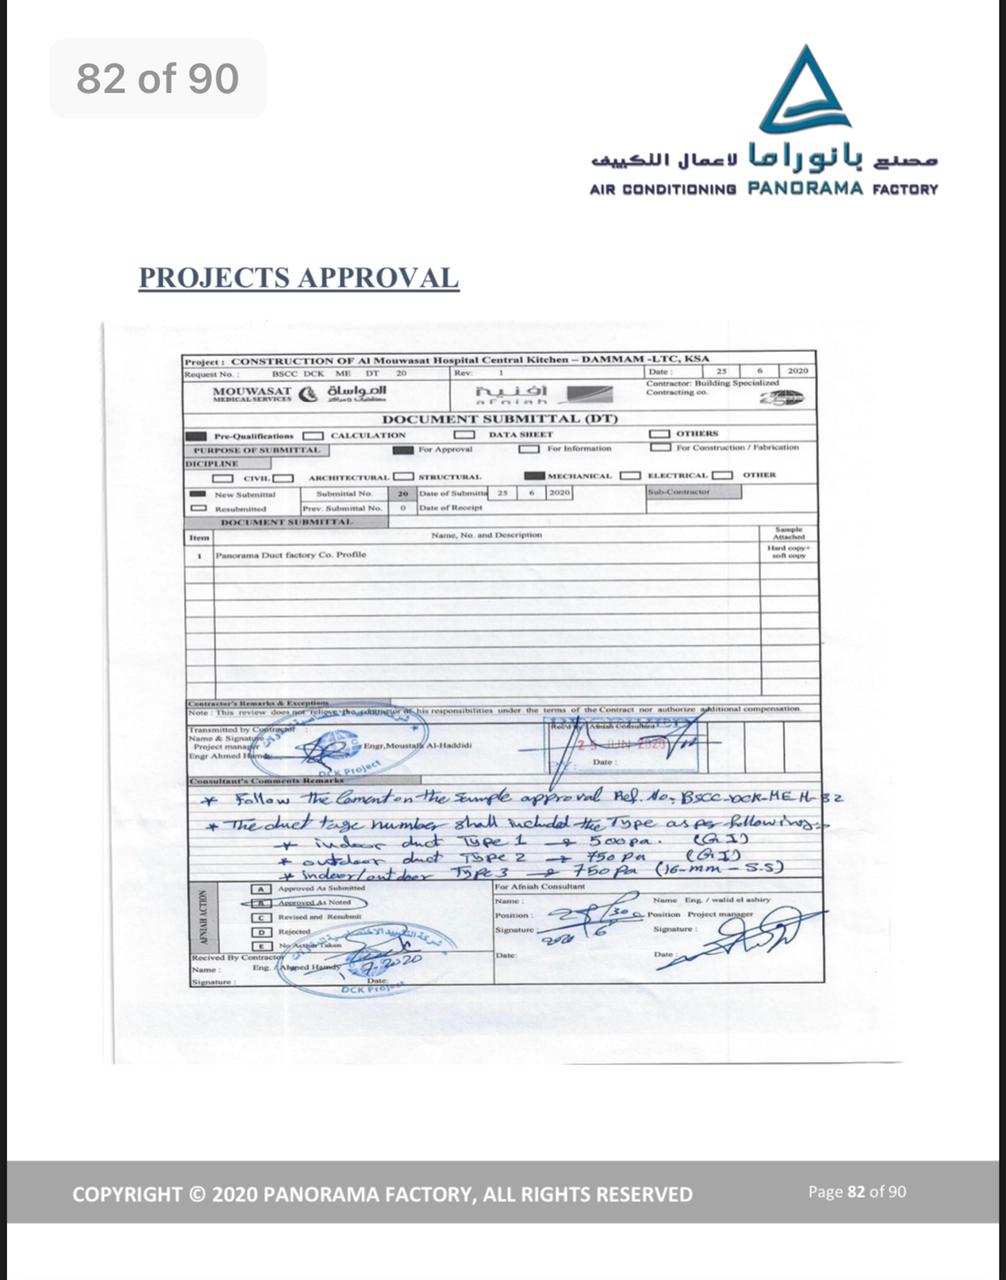 82 of 90
مصنع بانوراما لاعمال التكييف
AIR CONDITIONING PANORAMA FACTORY
PROJECTS APPROVAL
Project : CONSTRUCTION OF Al Mouwasat Hospital Central Kitchen – DAMMAM -LTC, KSA
Request No. : BSCC DCK ME DT 20 Rev: 1 Date : 25 6 2020
MOUWASAT المواساة
MEDICAL SERVICES
أفنية
afniah
Contractor: Building Specialized
Contracting co.
DOCUMENT SUBMITTAL (DT)
Pre-Qualifications CALCULATION DATA SHEET OTHERS
PURPOSE OF SUBMITTAL For Approval For Information For Construction / Fabrication
DICIPLINE
CIVIL ARCHITECTURAL STRUCTURAL MECHANICAL ELECTRICAL OTHER
New Submittal Submittal No. 20 Date of Submitta 25 6 2020 Sub-Contractor
Resubmitted Prev. Submittal No. 0 Date of Receipt
DOCUMENT SUBMITTAL
Item Name, No. and Description Sample
Attached
1 Panorama Duct factory Co. Profile Hard copy+
soft copy
Contractor's Remarks & Exceptions
Note : This review does not relieve the contractor of his responsibilities under the terms of the Contract nor authorize additional compensation.
Transmitted by Contractor :
Name & Signature
Project manager
Engr Ahmed Hamdy
Engr,Moustafa Al-Haddidi
DCK Project
Rec'd by Afniah Consultant
25 JUN 2020
Date :
Consultant's Comments Remarks
* Follow the Coment on the Sample approval Ref. No. BSCC-DCK-ME M-32
* The duct tage number shall included the Type as per following:-
* indoor duct Type 1 → 500 pa. (G.I)
* outdoor duct Type 2 → 750 pa (G.I)
* indoor/outdoor Type 3 → 750 Pa (16-mm - S.S)
AFNIAH ACTION
A Approved As Submitted
B Approved As Noted
C Revised and Resubmit
D Rejected
E No Action Taken
For Afniah Consultant
Name : Name Eng. / walid el ashiry
Position : Position Project manager
Signature : Signature :
Date: Date :
Recived By Contractor
Name : Eng. / Ahmed Hamdy
Signature : Date:
DCK Project
COPYRIGHT © 2020 PANORAMA FACTORY, ALL RIGHTS RESERVED
Page 82 of 90